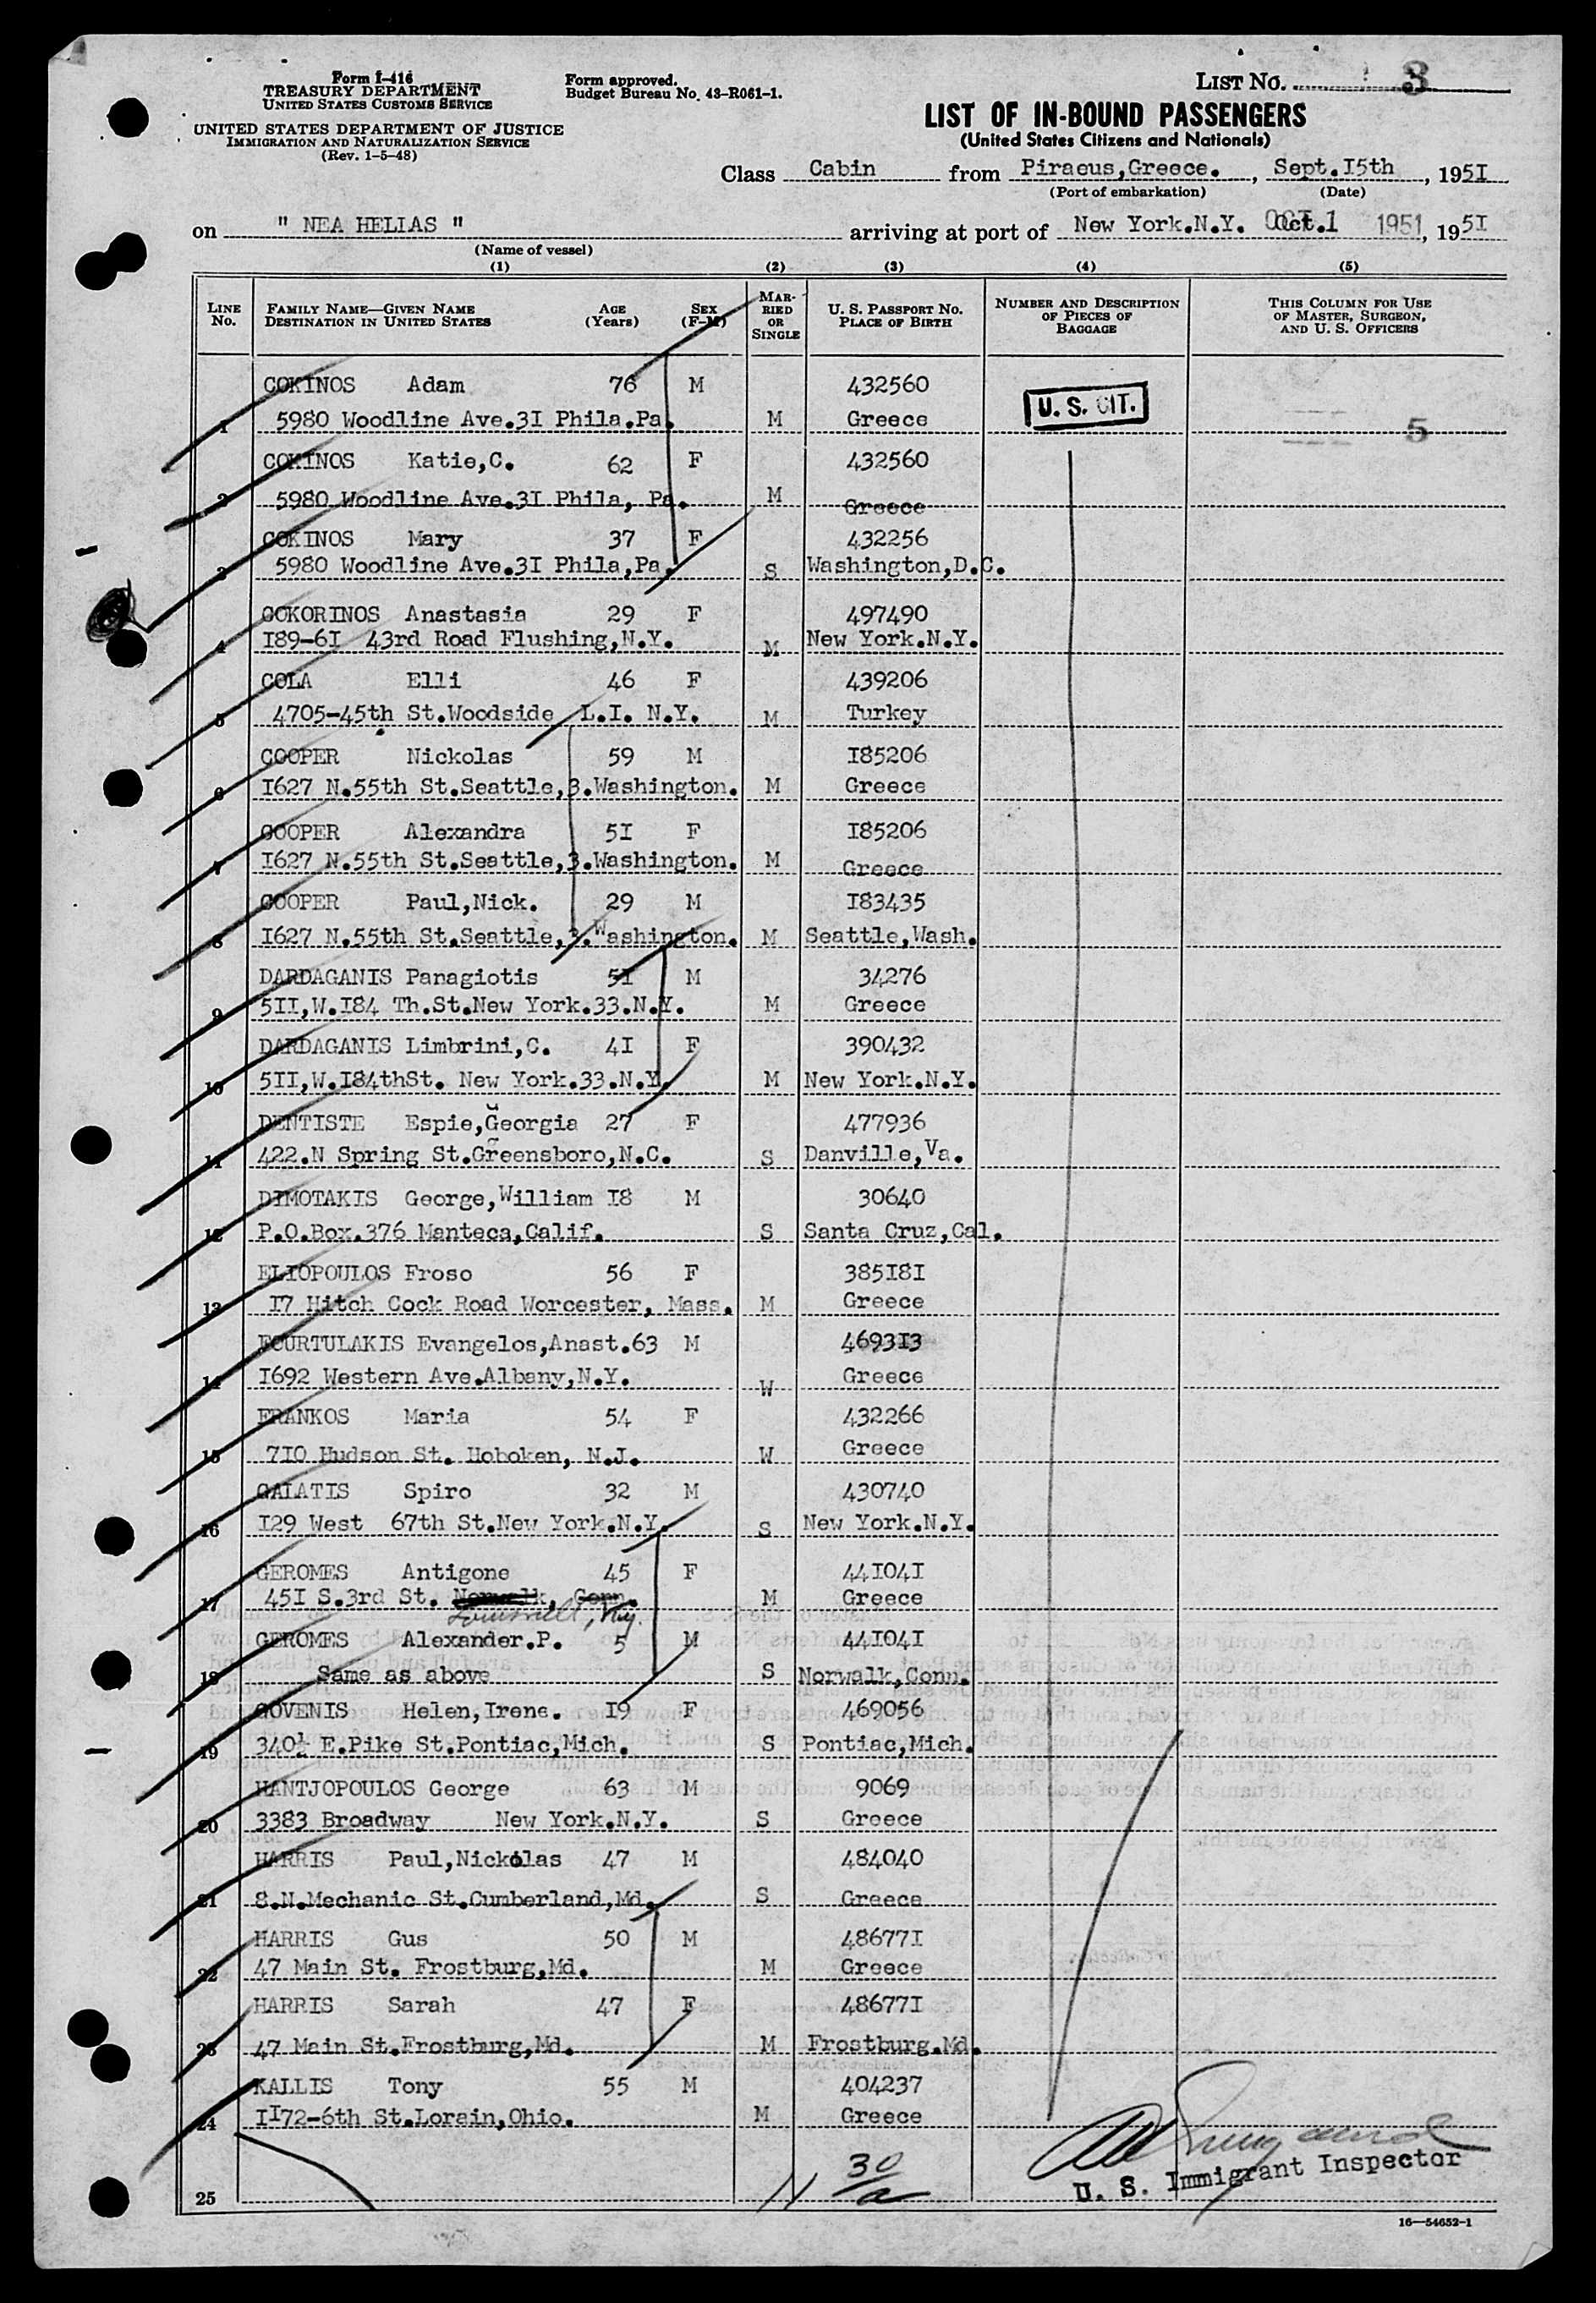 Form I-416
TREASURY DEPARTMENT
UNITED STATES CUSTOMS SERVICE
UNITED STATES DEPARTMENT OF JUSTICE
IMMIGRATION AND NATURALIZATION SERVICE
(Rev. 1-5-48)
Form approved.
Budget Bureau No. 43-R061-1.
LIST NO. 3
LIST OF IN-BOUND PASSENGERS
(United States Citizens and Nationals)
Class Cabin from Piraeus,Greece. , Sept.I5th , 195I
(Port of embarkation) (Date)
on " NEA HELIAS " arriving at port of New York.N.Y. Oct.1 1951, 195I
(Name of vessel)
(1) (2) (3) (4) (5)
LINE No. FAMILY NAME—GIVEN NAME DESTINATION IN UNITED STATES AGE (Years) SEX (F-M) MARRIED OR SINGLE U. S. PASSPORT NO. PLACE OF BIRTH NUMBER AND DESCRIPTION OF PIECES OF BAGGAGE THIS COLUMN FOR USE OF MASTER, SURGEON, AND U. S. OFFICERS
COKINOS Adam 76 M 432560
1 5980 Woodline Ave.3I Phila.Pa. M Greece U. S. CIT. 5
COKINOS Katie,C. 62 F 432560
2 5980 Woodline Ave.3I Phila, Pa. M Greece
COKINOS Mary 37 F 432256
3 5980 Woodline Ave.3I Phila,Pa. S Washington,D.C.
COKORINOS Anastasia 29 F 497490
4 I89-6I 43rd Road Flushing,N.Y. M New York.N.Y.
COLA Elli 46 F 439206
5 4705-45th St.Woodside L.I. N.Y. M Turkey
COOPER Nickolas 59 M I85206
6 I627 N.55th St.Seattle,3.Washington. M Greece
COOPER Alexandra 5I F I85206
7 I627 N.55th St.Seattle,3.Washington. M Greece
COOPER Paul,Nick. 29 M I83435
8 I627 N.55th St.Seattle,3.Washington. M Seattle,Wash.
DARDAGANIS Panagiotis 5I M 34276
9 5II,W.I84 Th.St.New York.33.N.Y. M Greece
DARDAGANIS Limbrini,C. 4I F 390432
10 5II,W.I84thSt. New York.33.N.Y. M New York.N.Y.
DENTISTE Espie,Georgia 27 F 477936
11 422.N Spring St.Greensboro,N.C. S Danville,Va.
DIMOTAKIS George,William I8 M 30640
12 P.O.Box.376 Manteca,Calif. S Santa Cruz,Cal.
ELIOPOULOS Froso 56 F 385I8I
13 I7 Hitch Cock Road Worcester, Mass. M Greece
FOURTULAKIS Evangelos,Anast.63 M 4693I3
14 I692 Western Ave.Albany,N.Y. W Greece
FRANKOS Maria 54 F 432266
15 7IO Hudson St. Hoboken, N.J. W Greece
GALATIS Spiro 32 M 430740
16 I29 West 67th St.New York.N.Y. S New York.N.Y.
GEROMES Antigone 45 F 44I04I
17 45I S.3rd St. Norwalk, Conn. M Greece
Louisville, Ky.
GEROMES Alexander.P. 5 M 44I04I
18 Same as above S Norwalk,Conn.
GOVENIS Helen,Irene. I9 F 469056
19 340½ E.Pike St.Pontiac,Mich. S Pontiac,Mich.
HANTJOPOULOS George 63 M 9069
20 3383 Broadway New York.N.Y. S Greece
HARRIS Paul,Nickolas 47 M 484040
21 8.N.Mechanic St.Cumberland,Md. S Greece
HARRIS Gus 50 M 48677I
22 47 Main St. Frostburg,Md. M Greece
HARRIS Sarah 47 F 48677I
23 47 Main St.Frostburg,Md. M Frostburg.Md.
KALLIS Tony 55 M 404237
24 II72-6th St.Lorain,Ohio. M Greece
30
25 U. S. Immigrant Inspector
16—54652-1